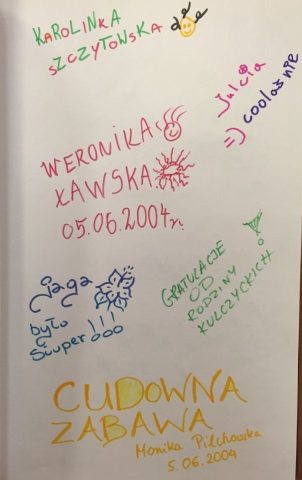 KAROLINKA
SZCZYTOWSKA
Julcia
=) coolaśnie
WERONIKA
ŁAWSKA
05.06.2004r.
jaga
było
Siuper!!!
GRATULACJE
OD
RODZINY
KULCZYCKICH
CUDOWNA
ZABAWA
Monika Pilchowska
5.06.2004